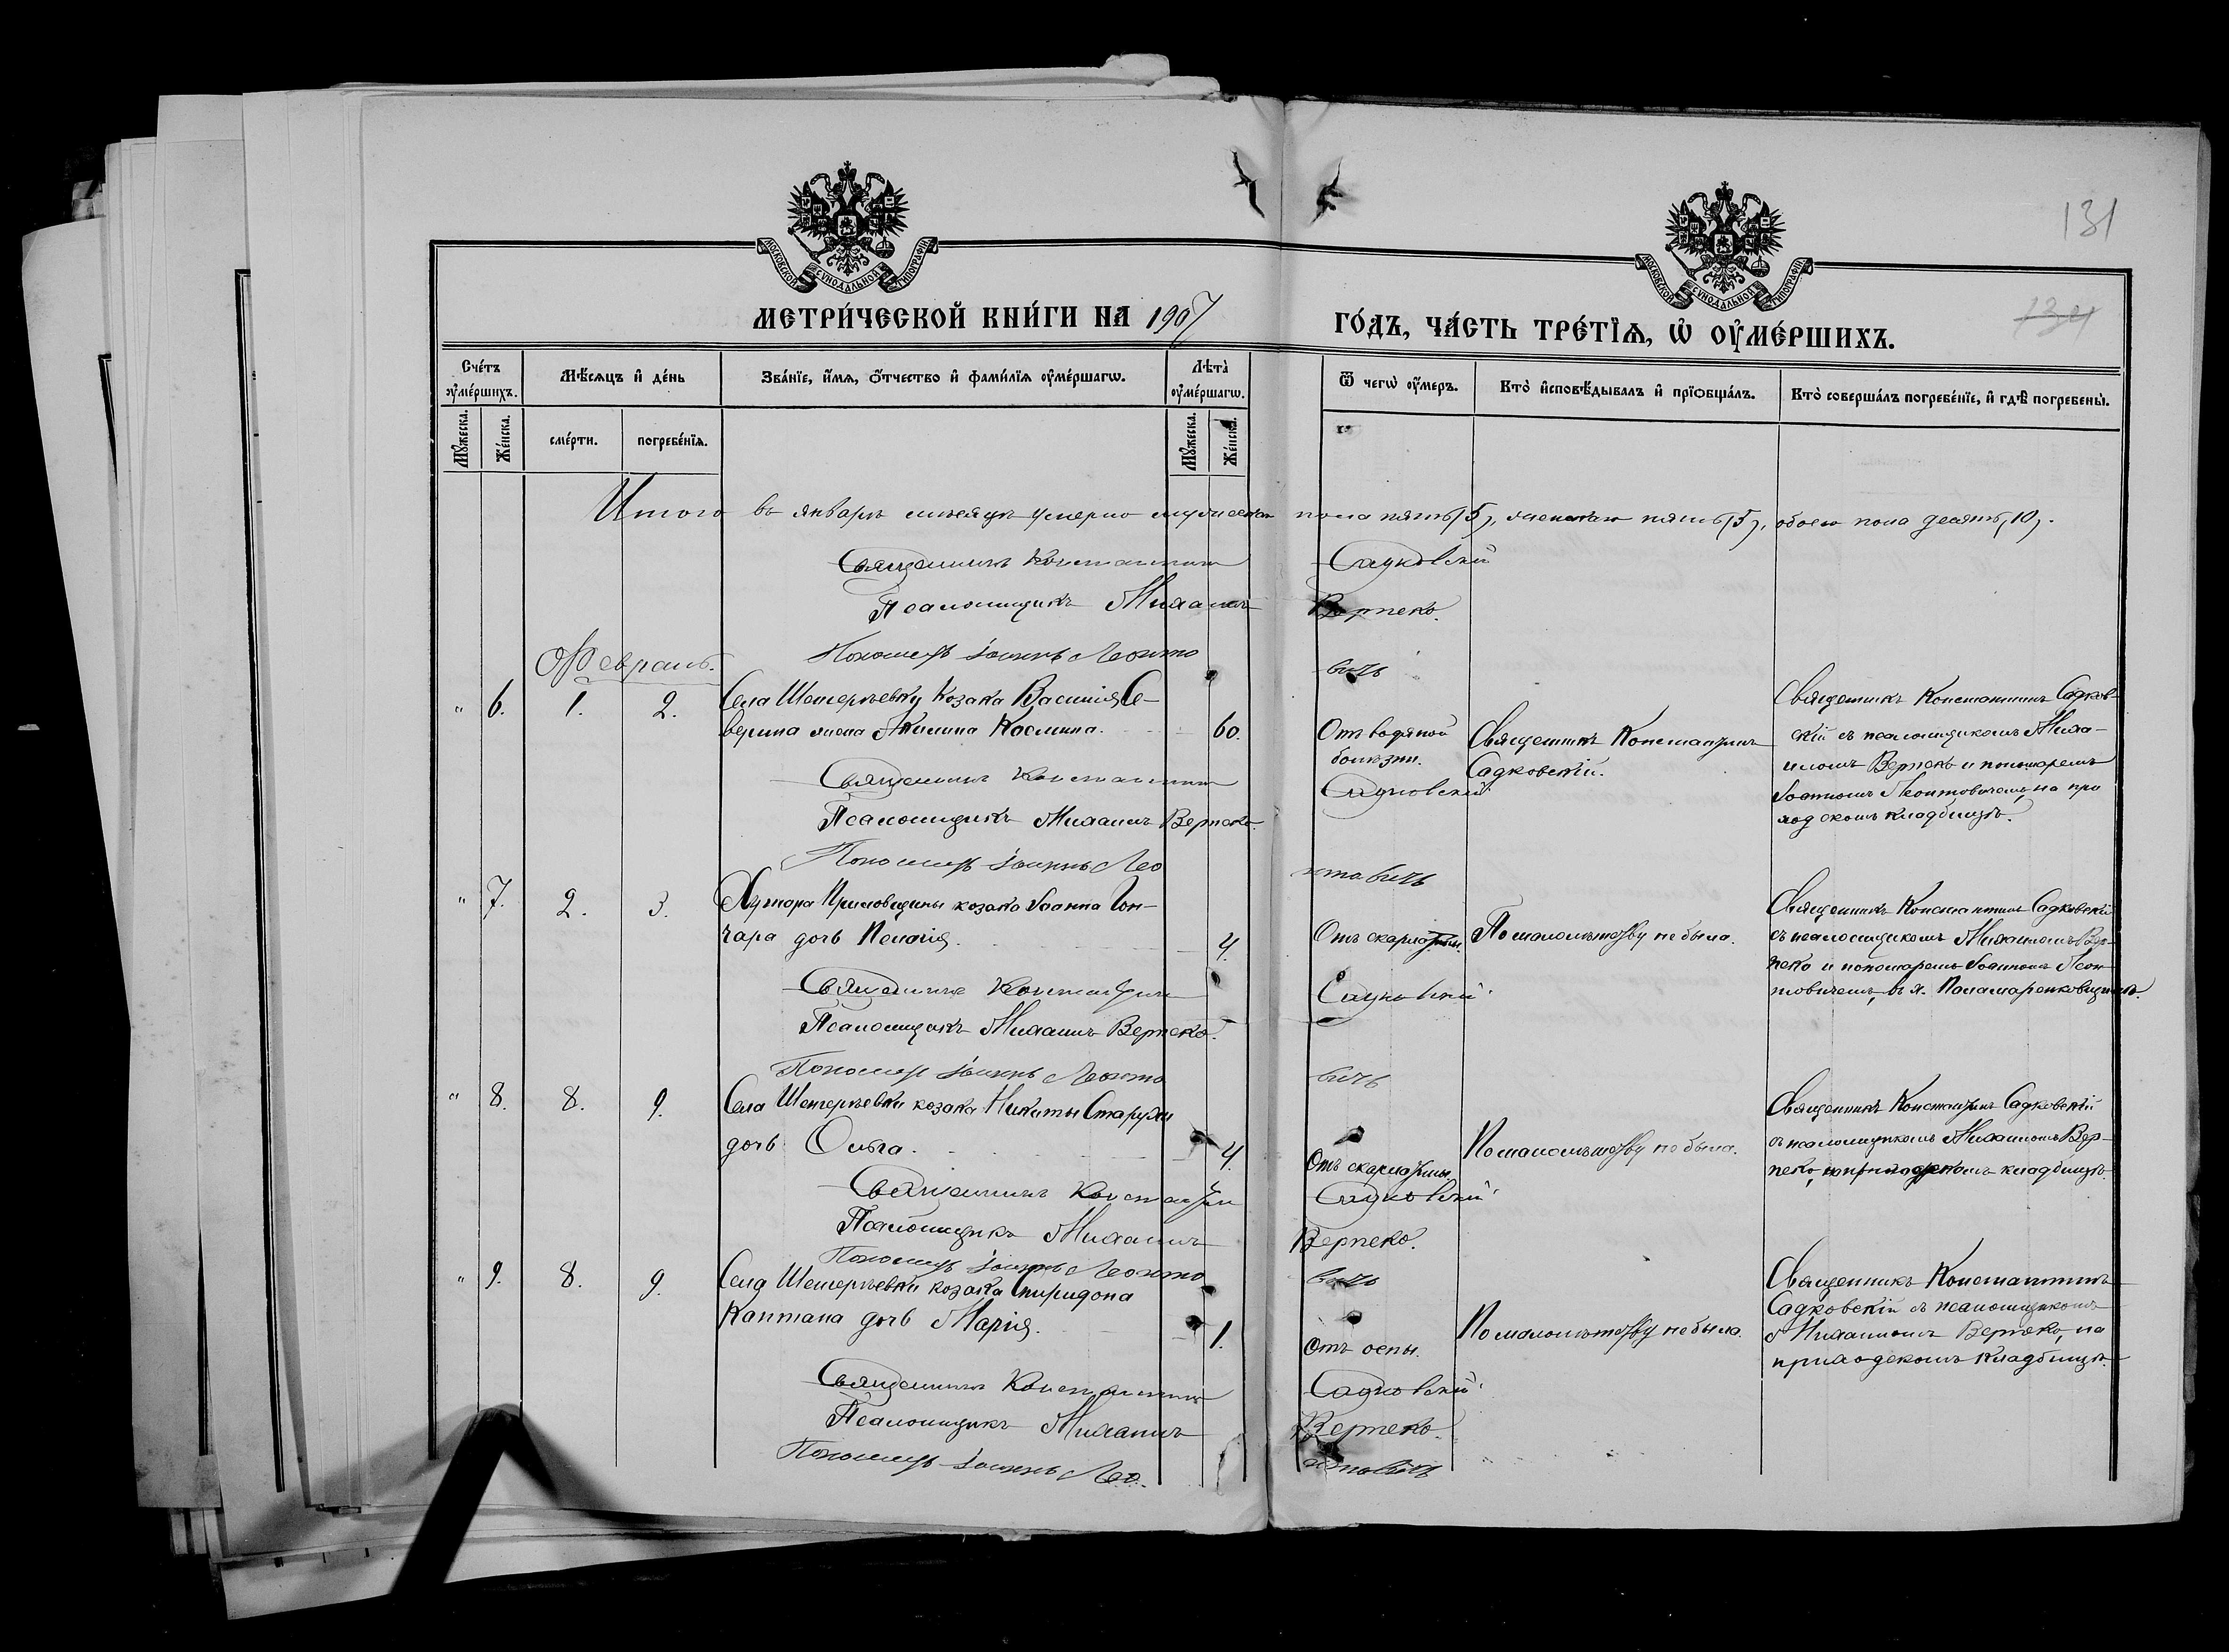 МОСКОВСКОЙ СѴНОДАЛЬНОЙ ТИПОГРАФІИ
МОСКОВСКОЙ СѴНОДАЛЬНОЙ ТИПОГРАФІИ
131
134
МЕТРИ́ЧЕСКОЙ КНИ́ГИ НА 1907 ГО́ДЪ, ЧА́СТЬ ТРЕ́ТЇѦ, Ѡ҆ ОУ҆МЕ́РШИХЪ.
Сче́тъ оу҆ме́ршихъ.
Мѣ́сяцъ и҆ де́нь
Зва́нїе, и҆́мѧ, ѻ҆́тчество и҆ фами́лїѧ оу҆ме́ршагѡ.
Лѣта̀ оу҆ме́ршагѡ.
Ѿ чегѡ̀ оу҆́меръ.
Кто̀ и҆сповѣ́дывалъ и҆ прїѻбща́лъ.
Кто̀ соверша́лъ погребе́нїе, и҆ гдѣ̀ погребены̀.
Мꙋ́жеска.
Же́нска.
сме́рти.
погребе́нїѧ.
Мꙋ́жеска.
Же́нска.
Итого въ январѣ мѣсяцѣ умерло мужескаго пола пять (5), женскаго пять (5), обоего пола десять (10).
Священникъ Константинъ Садковскій
Псаломщикъ Михаилъ Верпеко.
Пономарь Іоаннъ Леонтовичъ
Февраль.
" 6. 1. 2. Села Шемерѣевки козака Василія Се-
верина жена Акилина Космина. 60.
Отъ водяной
болѣзни.
Священникъ Константинъ
Садковскій.
Священникъ Константинъ Садков-
скій съ псаломщикомъ Миха-
иломъ Верпеко и пономаремъ
Іоанномъ Леонтовичемъ, на при
ходскомъ кладбищѣ.
Священникъ Константинъ Садковскій
Псаломщикъ Михаилъ Верпеко.
Пономарь Іоаннъ Леонтовичъ
" 7. 2. 3. Хутора козака Іоанна Гон-
чара дочь Пелагія. 4.
Отъ скарлатины.
По малолѣтству не была.
Священникъ Константинъ Садковскій
съ псаломщикомъ Михаиломъ Вер-
пеко и пономаремъ Іоанномъ Леон-
товичемъ, въ х. Паламаренковщинѣ.
Священникъ Константинъ Садковскій
Псаломщикъ Михаилъ Верпеко.
Пономарь Іоаннъ Леонтовичъ
" 8. 8. 9. Села Шемерѣевки козака Никиты
дочь Ольга. 4.
Отъ скарлатины.
По малолѣтству не была.
Священникъ Константинъ Садковскій
съ псаломщикомъ Михаиломъ Вер-
пеко, на приходскомъ кладбищѣ.
Священникъ Константинъ Садковскій
Псаломщикъ Михаилъ Верпеко.
Пономарь Іоаннъ Леонтовичъ
" 9. 8. 9. Села Шемерѣевки козака Спиридона
Каптана дочь Марія. 1.
Отъ оспы.
По малолѣтству не была.
Священникъ Константинъ
Садковскій съ псаломщикомъ
Михаиломъ Верпеко, на
приходскомъ кладбищѣ.
Священникъ Константинъ Садковскій
Псаломщикъ Михаилъ Верпеко.
Пономарь Іоаннъ Леонтовичъ